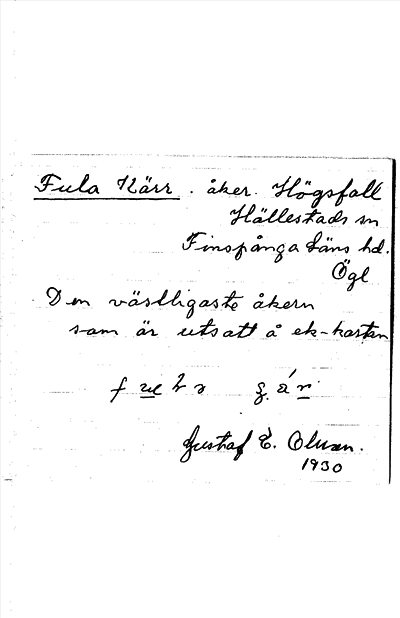 Fula Kärr. åker. Högsfall
Hällestads sn
Finspånga Läns hd.
Ögl
Den västligaste åkern
som är utsatt å ek-kartan
Gustaf E. Olsson.
1930